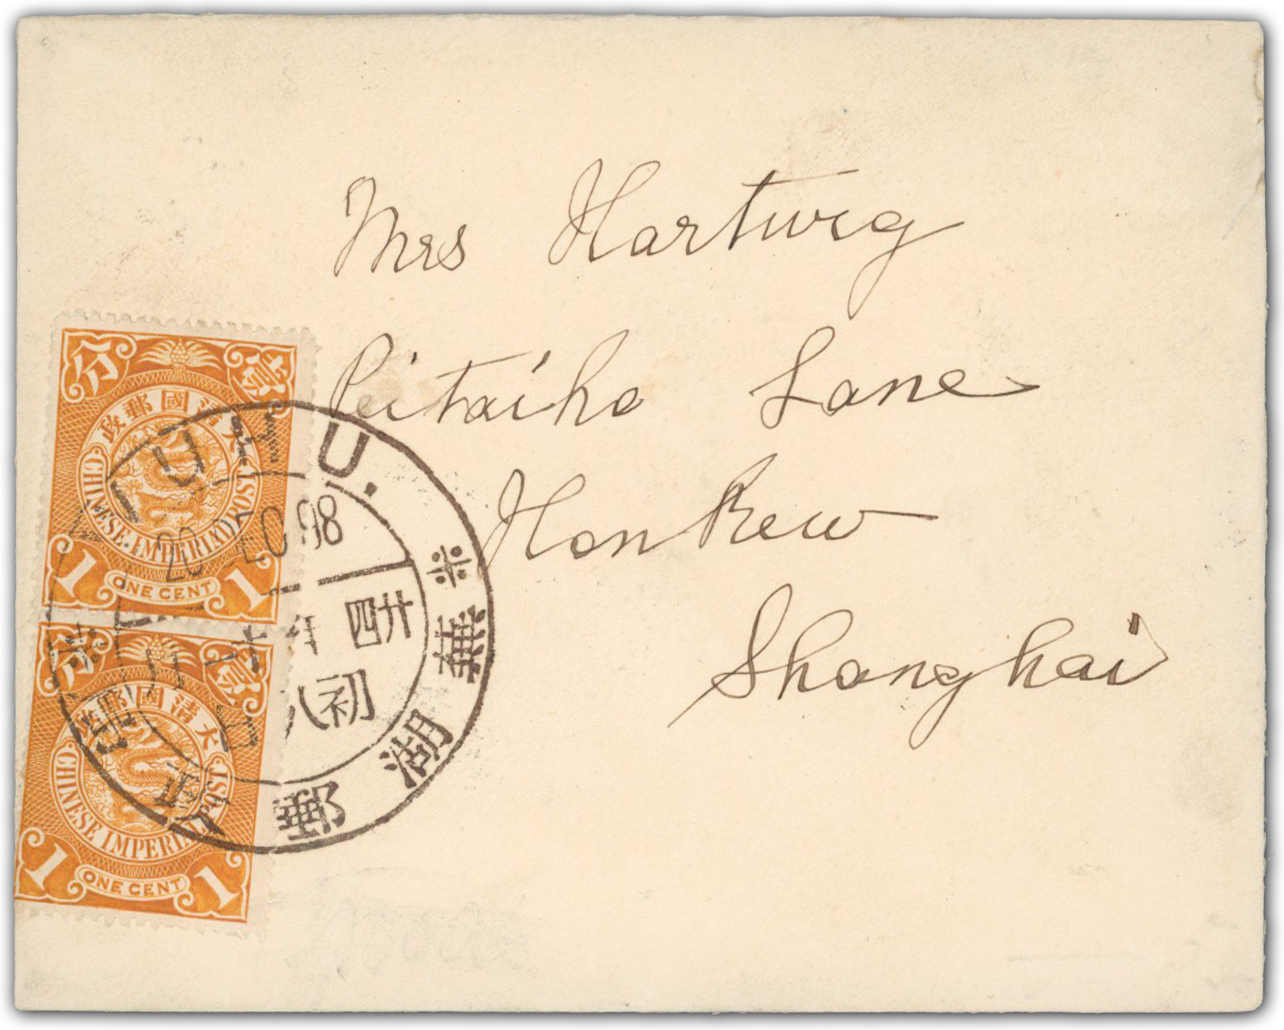 Mrs Hartwig
Peitaiho Lane
Honkew
Shanghai
分 壹
大清國郵政
CHINESE IMPERIAL POST
1 ONE CENT 1
分 壹
大清國郵政
CHINESE IMPERIAL POST
1 ONE CENT 1
WUHU.
98
廿四年
初八
蕪湖郵政